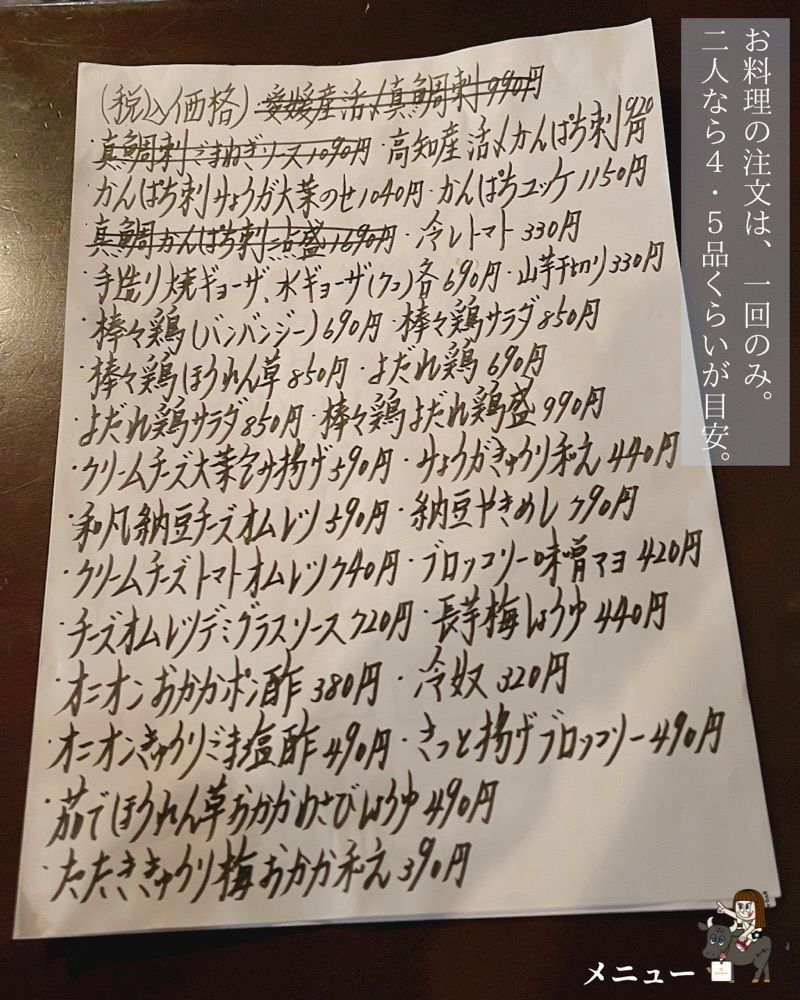 お料理の注文は、一回のみ。
二人なら4・5品くらいが目安。
(税込価格) 愛媛産活〆真鯛刺990円
・真鯛刺ごまねぎソース1090円・高知産活〆かんぱち刺920円
かんぱち刺みょうが大葉のせ1040円・かんぱちユッケ1150円
・真鯛かんぱち刺2点盛り1690円・冷しトマト330円
・手造り焼ギョーザ、水ギョーザ(7コ)各690円・山芋千切り330円
・棒々鶏(バンバンジー)690円・棒々鶏サラダ850円
・棒々鶏ほうれん草850円・よだれ鶏690円
・よだれ鶏サラダ850円・棒々鶏よだれ鶏盛990円
・クリームチーズ大葉包み揚げ590円・みょうがきゅうり和え440円
・和風納豆チーズオムレツ590円・納豆やきめし790円
・クリームチーズトマトオムレツ740円・ブロッコリー味噌マヨ420円
・チーズオムレツデミグラスソース720円・長芋梅しょうゆ440円
・オニオンおかかポン酢380円・冷奴320円
・オニオンきゅうりごま塩酢490円・さっと揚げブロッコリー490円
・茹でほうれん草おかかわさびしょうゆ490円
・たたききゅうり梅おかか和え390円
メニュー